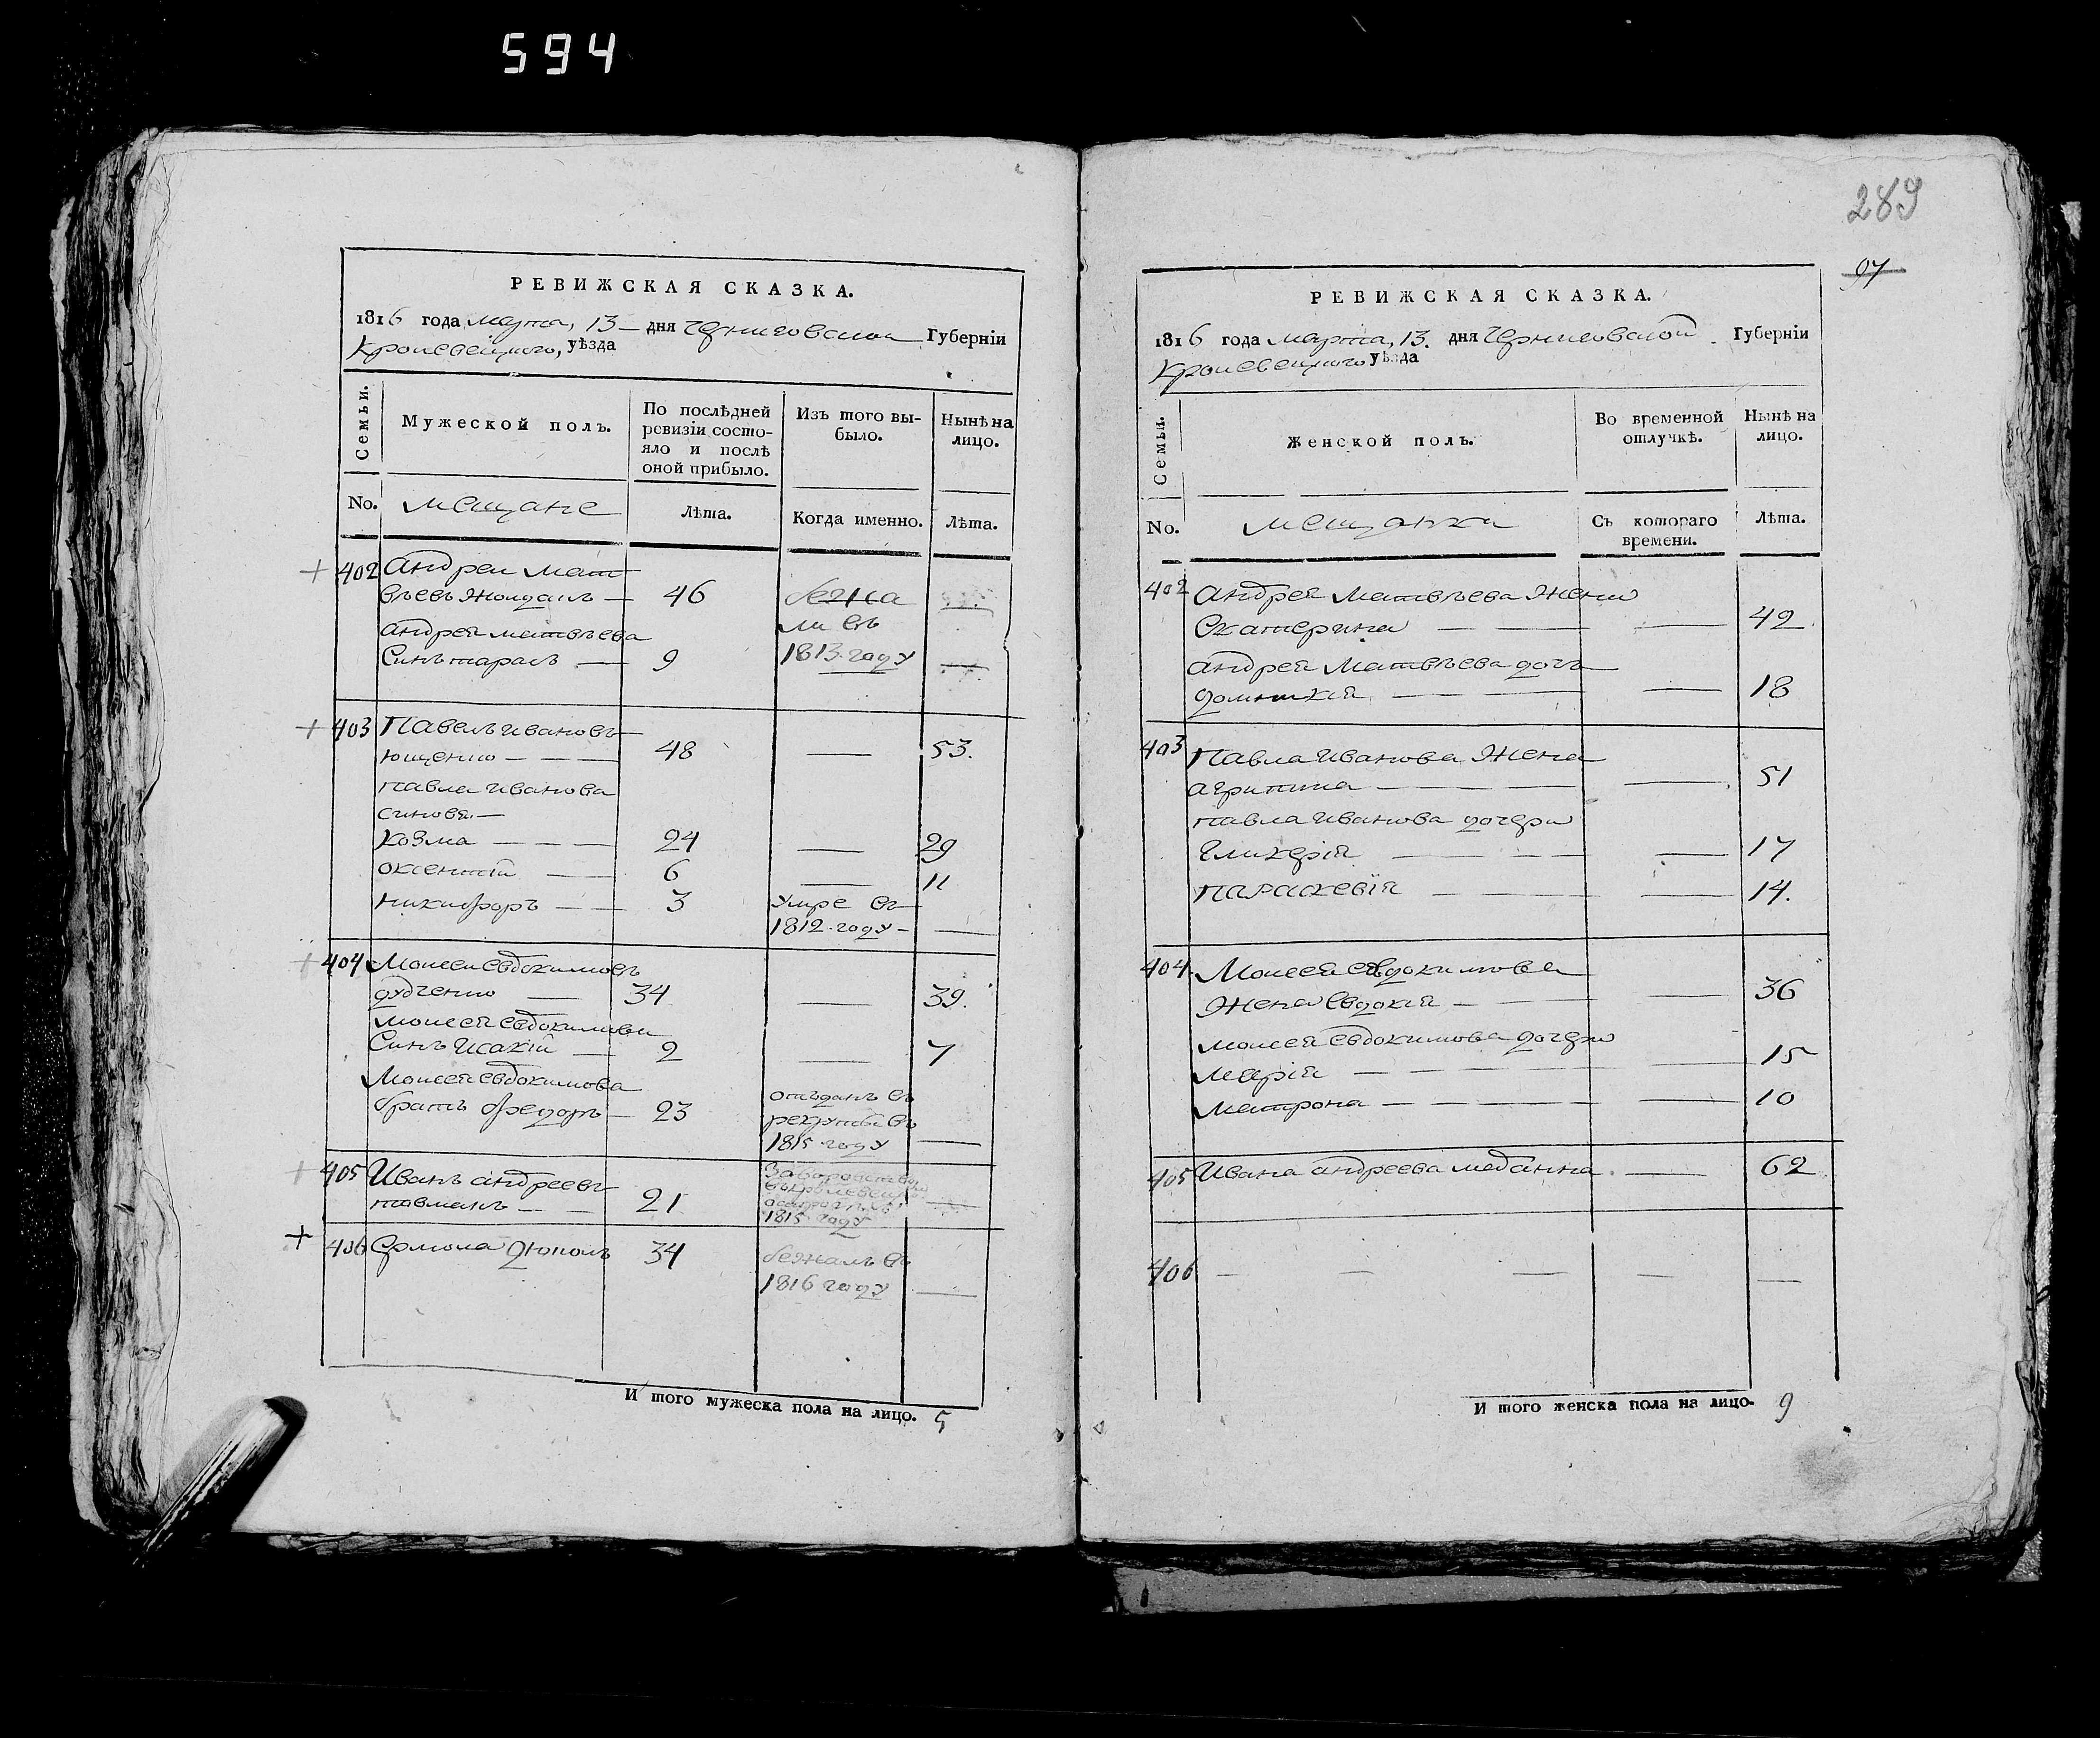 594
РЕВИЖСКАЯ СКАЗКА.
1816 года марта, 13 дня Черниговской Губерніи
Кролевецкого, уѣзда
Семьи.
Мужеской полъ.
По послѣдней ревизіи состояло и послѣ оной прибыло.
Изъ того выбыло.
Нынѣ на лицо.
No.
мещане
Лѣта.
Когда именно.
Лѣта.
402 Андрей Мат
вѣевъ 46
Андрея матвѣева
Синъ тарасъ — 9 1813 году —
403 Павелъ Ивановъ
ющенко — 48 — 53.
павла иванова
синовя. —
козма — 24 — 29
оксентій — 6 — 11
никифоръ — 3 умре въ
1812. году — —
404 Моисей евдокимовъ
дудченко — 34 — 39.
моисея евдокимова
Синъ Исакій — 2 — 7
Моисея евдокимова
братъ федоръ — 23 отъданъ въ
рекруты въ
1815 году —
405 Иванъ андреевъ
21
1815 году
406 Ермола 34 бежалъ въ
1816 году —
И того мужеска пола на лицо. 5
289
97
РЕВИЖСКАЯ СКАЗКА.
1816 года марта, 13. дня Черниговской Губерніи
Кролевецкого уѣзда
Семьи.
Женской полъ.
Во временной отлучкѣ.
Нынѣ на лицо.
No.
мещанки
Съ котораго времени.
Лѣта.
402 Андрея Матвѣева Жена
Екатерина — — 42
андрея Матвѣева дочь
домникія — — 18
403 Павла Иванова Жена
агрипина — — 51
павла Иванова дочери
Гликерія — — 17
параскевія — — 14.
404 Моисея евдокимова
Жена Евдокія — — 36
моисея евдокимова дочери
марія — — 15
матрона — — 10
405 Ивана андреева — 62
406 — — — — —
И того женска пола на лицо. 9